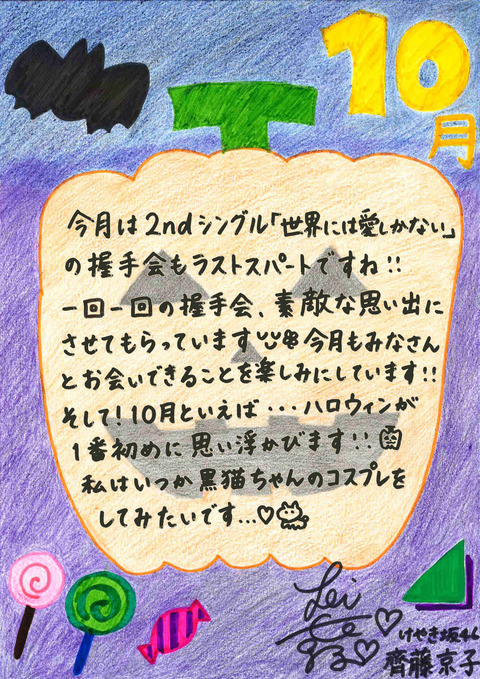 10
月
今月は2ndシングル「世界には愛しかない」
の握手会もラストスパートですね!!
一回一回の握手会、素敵な思い出に
させてもらっています 今月もみなさん
とお会いできることを楽しみにしています!!
そして!10月といえば・・・ハロウィンが
1番初めに思い浮かびます!!
私はいつか黒猫ちゃんのコスプレを
してみたいです...♡
けやき坂46
齊藤京子